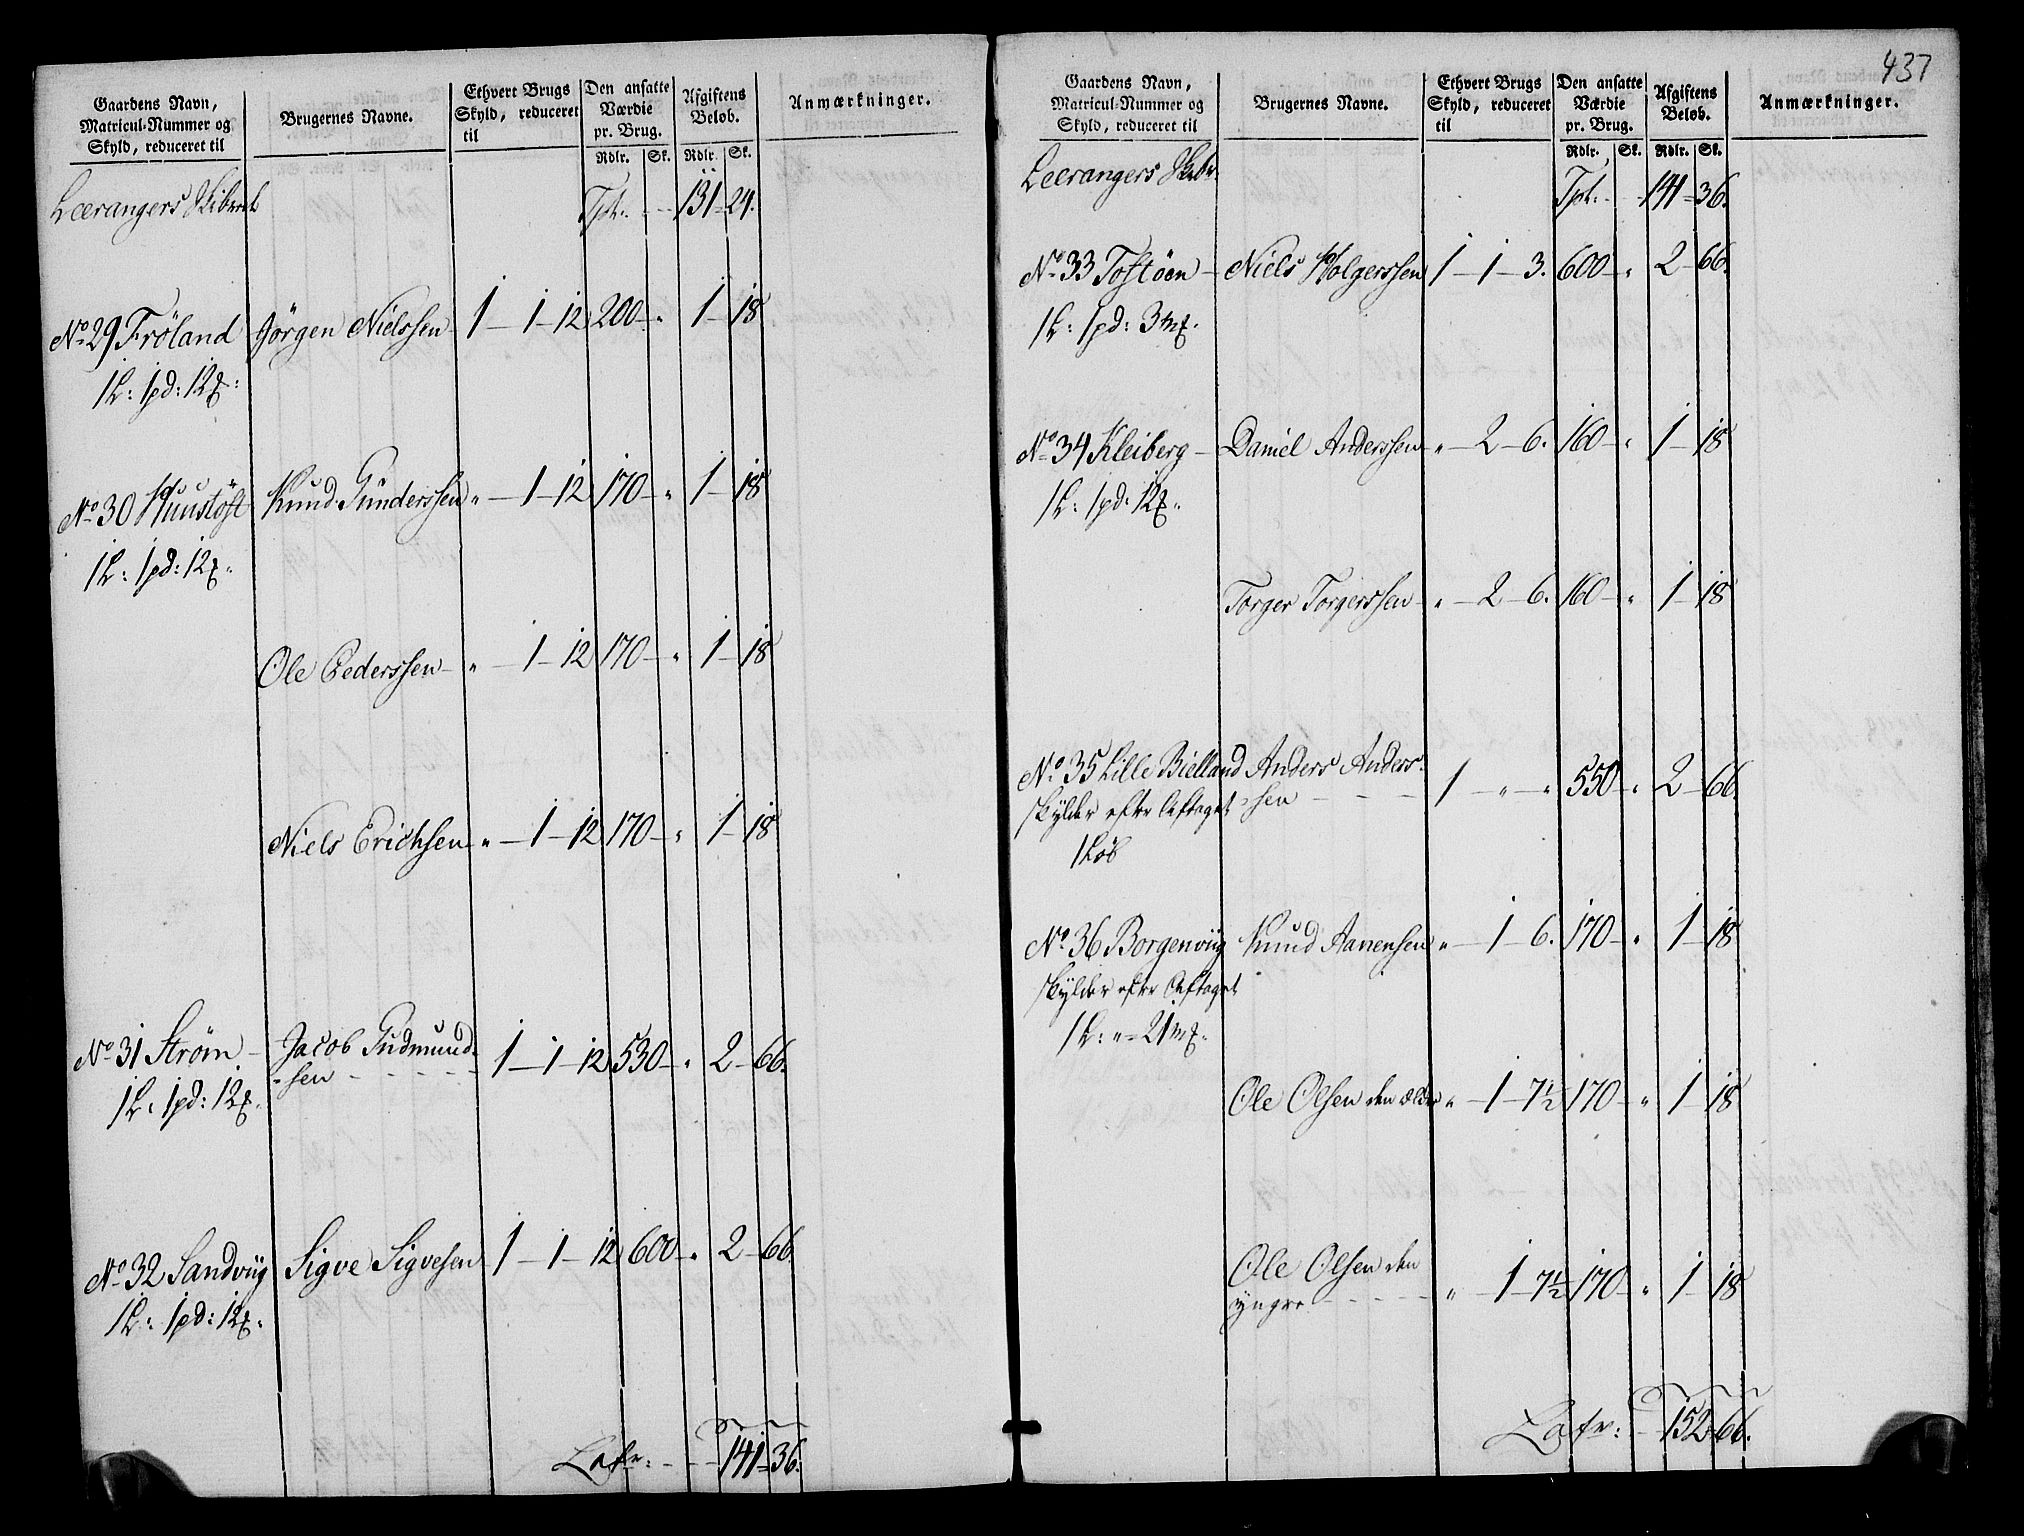 Gaardens Navn,
Matricul-Nummer og
Skyld, reduceret til
Brugernes Navne.
Ethvert Brugs
Skyld, reduceret
til
Den ansatte
Værdie
pr. Brug.
Rdlr. Sk.
Afgiftens
Beløb.
Rdlr. Sk.
Anmærkninger.
Leerangers Skibrede
Tpt: 131 - 24.
No 29 Frøland Jørgen Nielssen 1 - 1 - 12 200 - " 1 - 18
1 L: 1 pd: 12 ℔:
No 30 Huustøft Knud Gunderssen " - 1 - 12 170 - " 1 - 18
1 L: 1 pd: 12 ℔.
Ole Pederssen - " - 1 - 12 170 - " 1 - 18
Niels Erichsen - " - 1 - 12 170 - " 1 - 18
No 31 Strøm - Jacob Gudmund-
-sen - - - - - 1 - 1 - 12 530 - " 2 - 66.
1 L: 1 pd: 12 ℔.
No 32 Sandviig Sigve Sigvesen 1 - 1 - 12 600 - " 2 - 66.
1 L: 1 pd: 12 ℔.
Latr: - - 141 - 36.
437
Gaardens Navn,
Matricul-Nummer og
Skyld, reduceret til
Brugernes Navne.
Ethvert Brugs
Skyld, reduceret
til
Den ansatte
Værdie
pr. Brug.
Rdlr. Sk.
Afgiftens
Beløb.
Rdlr. Sk.
Anmærkninger.
Leerangers Skibr.
Tpt: 141 = 36.
No 33 Tostøen - Niels Holgerssen 1 - 1 - 3. 600 - " 2 - 66.
1 L: 1 pd: 3 m℔.
No 34 Kleiberg - Daniel Anderssen - " - 2 - 6. 160 - " 1 - 18
1 L: 1 pd: 12 ℔.
Torger Torgerssen - " - 2 - 6. 160 - " 1 - 18
No 35 Lille Bielland Anders Anders-
skylder efter Aftaget -sen - - - 1 - " - " 550 - " 2 - 66.
1 Løb
No 36 Borgenviig Knud Aanensen " - 1 - 6. 170 - " 1 - 18
skylder efter Aftaget
1 L: " = 21 m℔.
Ole Olsen den ældre " - 1 - 7½ 170 - " 1 - 18
Ole Olsen den
yngre - - - - - " - 1 - 7½ 170 - " 1 - 18
Latr: - 152 - 66.